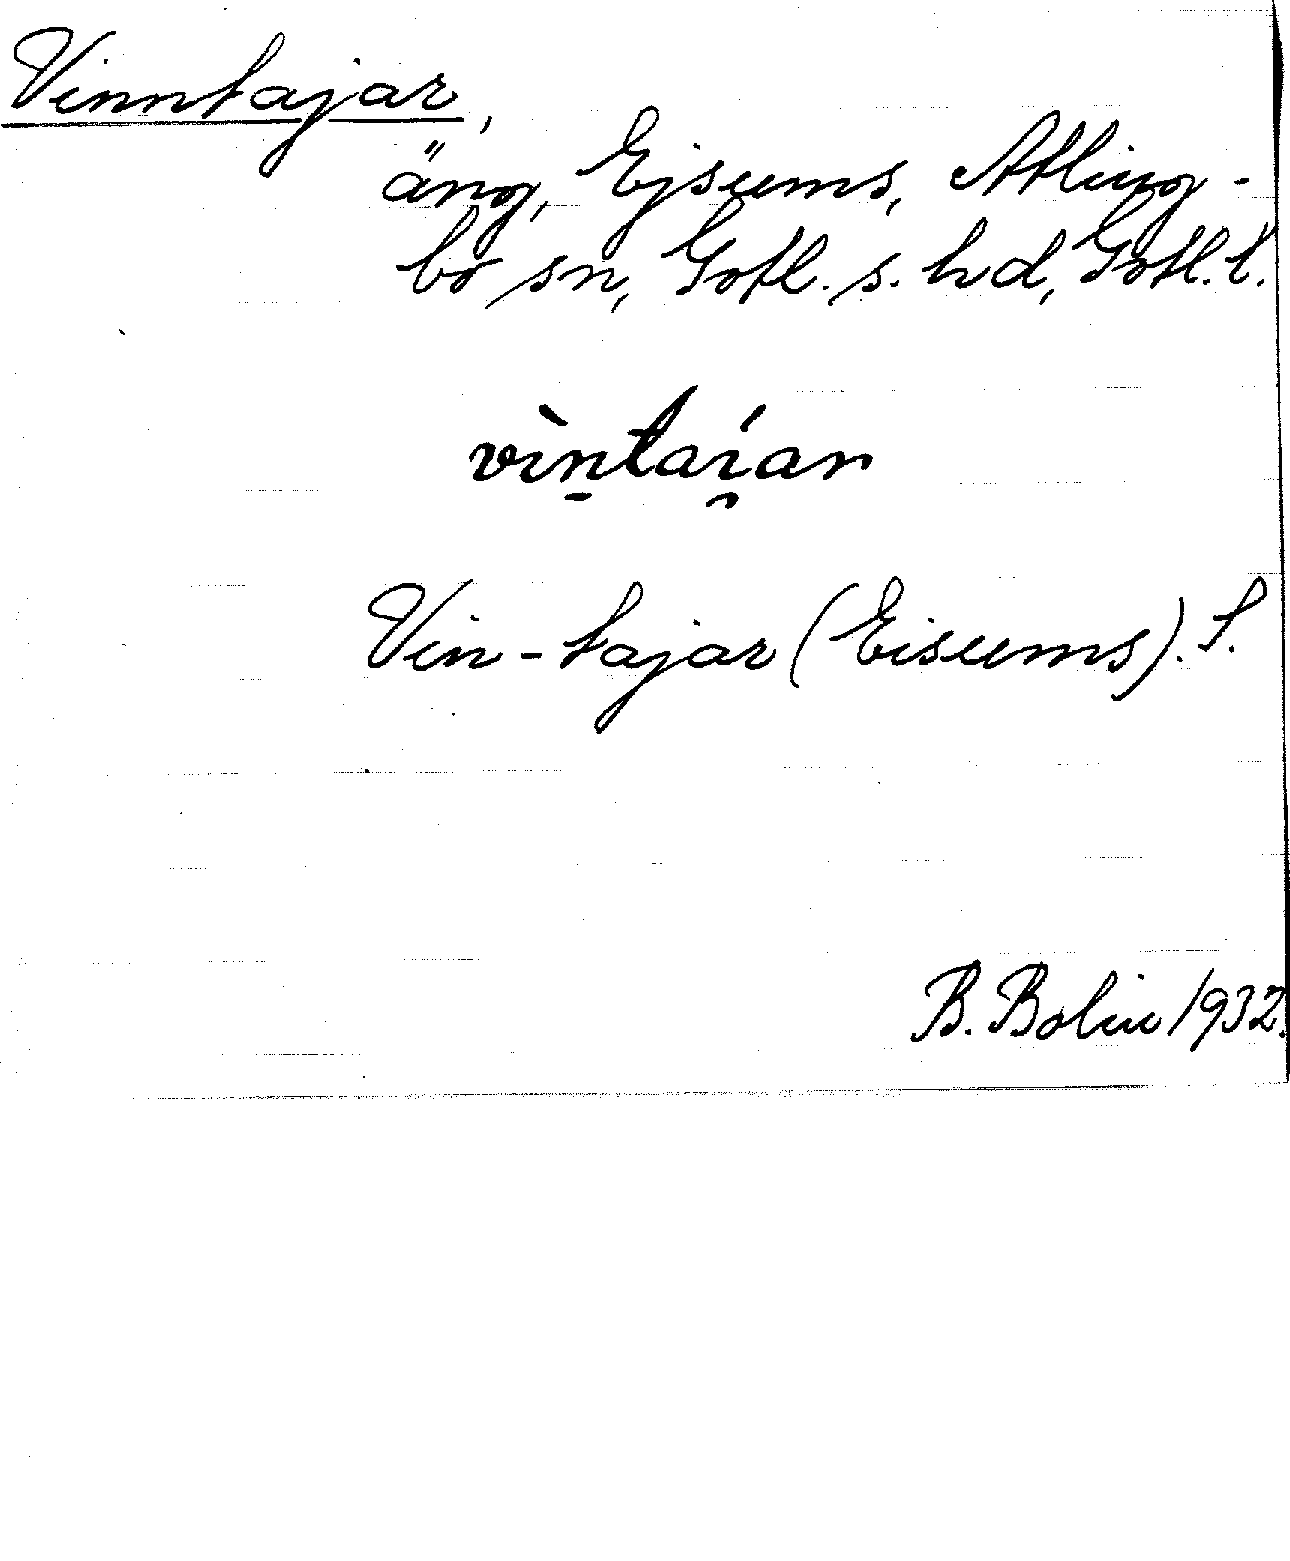 Vinntajar,
äng, Ejsums, Atling-
bo sn, Gotl. s. hd, Gotl. l.
vìn̠taí̯ar
Vin-tajar (Eisums). S.
B. Bolin 1932.